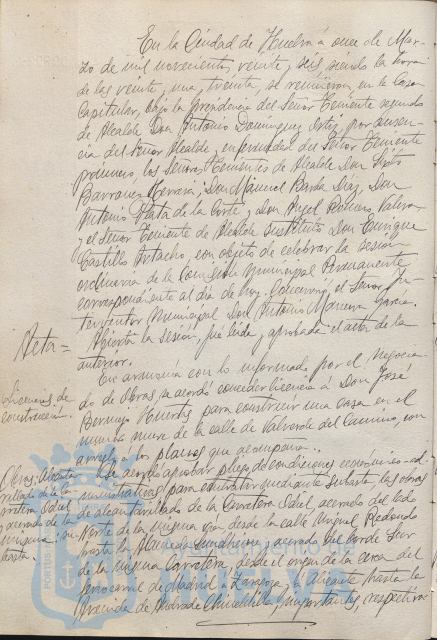 En la Ciudad de Huelva á once de Mar-
zo de mil novecientos veinte y seis, siendo la hora
de las veinte y una y treinta, se reunieron en la Casa
Capitular, bajo la presidencia del Señor Teniente segundo
de Alcalde Don Antonio Domínguez Ortiz, por ausen-
cia del Señor Alcalde y enfermedad del Señor Teniente
primero, los Señores Tenientes de Alcalde Don Sixto
Barranco Herrera, Don Manuel Barba Díaz, Don
Antonio Plata de la Corte y Don Angel Romero Valero
y el Señor Teniente de Alcalde Sustituto Don Enrique
Castillo Artacho, con objeto de celebrar la sesión
ordinaria de la Comisión Municipal Permanente
correspondiente al día de hoy. Concurrió el Señor In-
terventor Municipal Don Antonio Garcia.
Acta =
Abierta la sesión, fué leida y aprobada el acta de la
anterior.
Licencias de
construcción.
En armonía con lo informado por el Negocia-
do de Obras, se acordó conceder licencia á Don José
Bermejo Huertas para construir una casa en el
numero nueve de la calle de Valverde del Camino, con
arreglo a los planos que acompaña.
Obras: Alcanta-
rillado de la Ca-
rretera Odiel
y acerado de la
misma: su-
basta.
Se acordó aprobar pliego de condiciones económico-ad-
ministrativas para contratar mediante subasta, las obras
de alcantarillado de la Carretera Odiel, acerado del lado
Norte de la misma via desde la calle Miguel Redondo
hasta la Alameda Sundheim, acerado del borde Sur
de la misma Carretera, desde el origen de la cerca del
ferrocarril de Madrid a Zaragoza y a Alicante hasta la
Avenida de Andrade Chinchilla, importantes, respectiva-
PORTUS
Ayuntamiento de
HUELVA